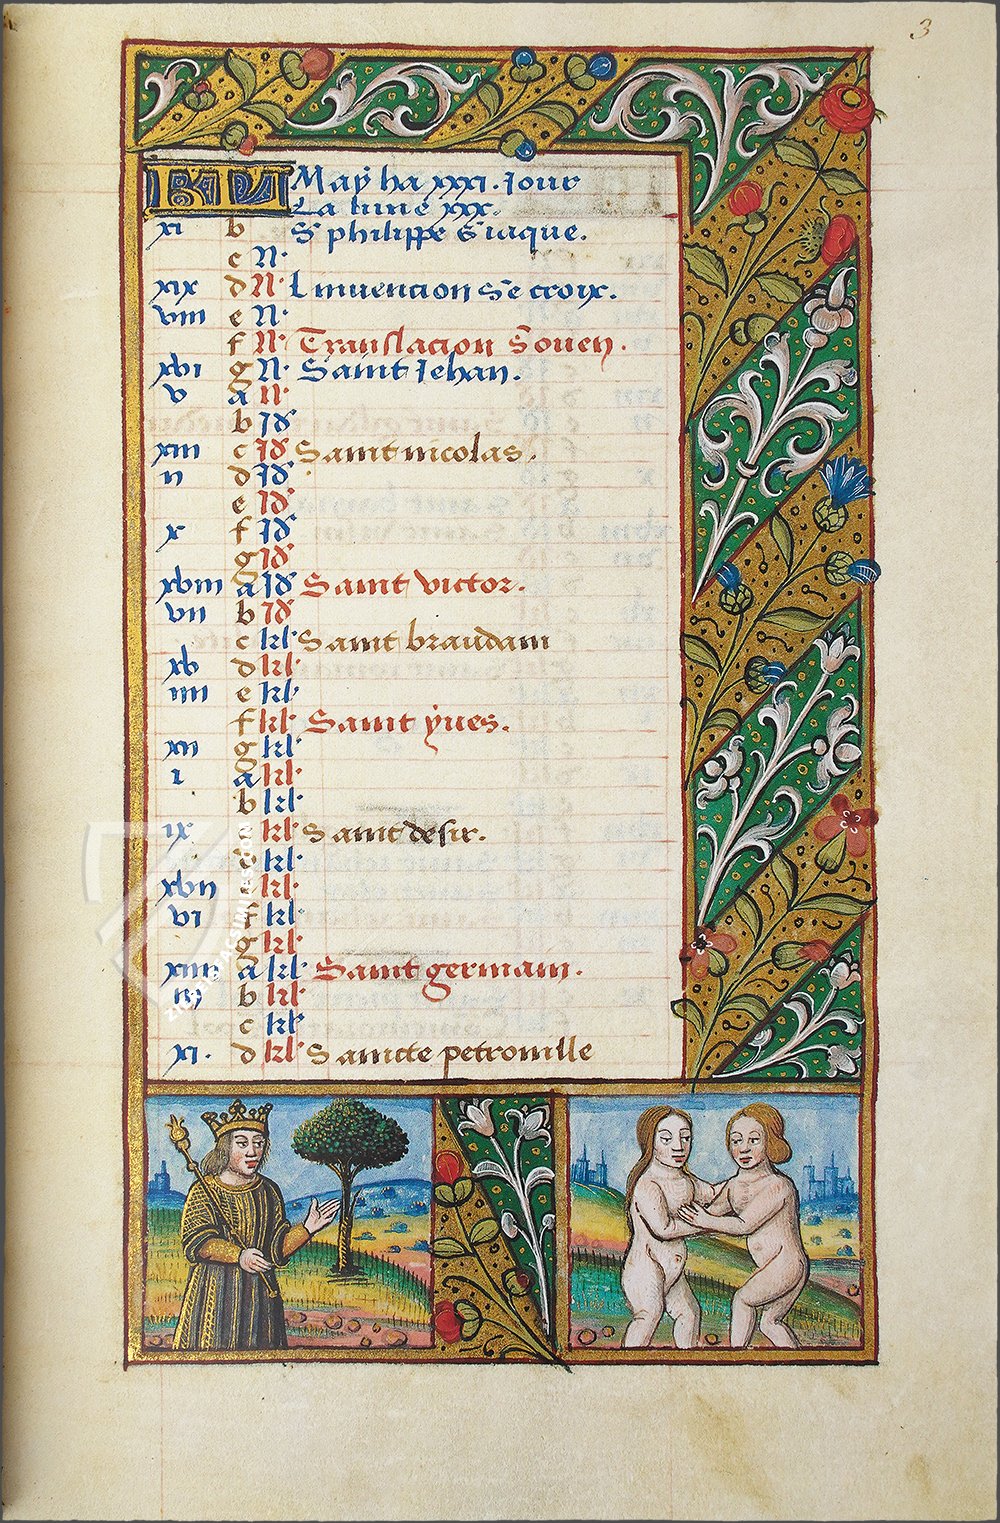 3
KL May ha xxxi. jour
La lune xxx.
xi b S philippe s iaque.
c N.
xix d N. L invencion ste croix.
viii e N.
f N. Translacion S ouen.
xvi g N. Saint Jehan.
v a N.
b Jd
xiii c Jd Saint nicolas.
ii d Jd
e Jd
x f Jd
g Jd
xviii a Jd Saint victor.
vii b Jd
c kl Saint braudain
xv d kl
iiii e kl
f kl Saint yves.
xii g kl
i a kl
b kl
ix c kl Saint desir.
d kl
xvii e kl
vi f kl
g kl
xiiii a kl Saint germain.
iii b kl
c kl
xi. d kl Sancte petronille